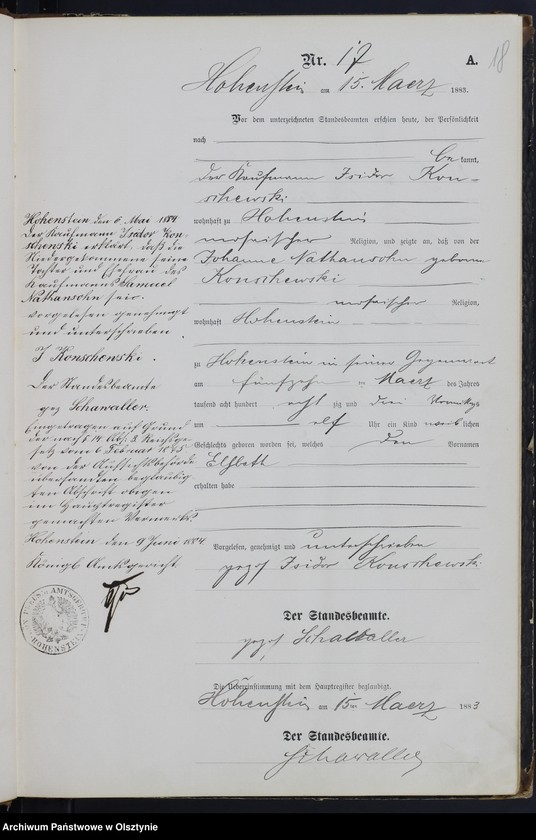 18
Nr. 17 A.
Hohenstein am 15. Maerz 1883.
Vor dem unterzeichneten Standesbeamten erschien heute, der Persönlichkeit
nach
bekannt,
der Kaufmann Isidor Kon-
schewski
wohnhaft zu Hohenstein
mosaischer Religion, und zeigte an, daß von der
Johanne Nathansohn geborene
Konschewski
mosaischer Religion,
wohnhaft Hohenstein
zu Hohenstein in seiner Gegenwart
am fünfzehn Maerz des Jahres
tausend acht hundert acht zig und drei Vormittags
um elf Uhr ein Kind weiblichen
Geschlechts geboren worden sei, welches den Vornamen
Elsbeth
erhalten habe
Vorgelesen, genehmigt und unterschrieben
gez. Isidor Konschewski
Der Standesbeamte.
gez. Schawaller
Die Uebereinstimmung mit dem Hauptregister beglaubigt.
Hohenstein am 15ten Maerz 1883
Der Standesbeamte.
Schawaller
Hohenstein den 6. Mai 1884
Der Kaufmann Isidor Kon-
schewski erklärt, daß die
Niedergekommene seine
Tochter und Ehefrau des
Kaufmanns Samuel
Nathansohn sei.
vorgelesen genehmigt
und unterschrieben
I Konschewski.
Der Standesbeamte
gez Schawaller.
Eingetragen auf Grund
der nach § 14 Abs. 3 Reichsge-
setz vom 6 Februar 1875
von der Aufsichtsbehörde
übersandten beglaubig-
ten Abschrift obigen
im Hauptregister
gemachten Vermerks.
Hohenstein den 9 Juni 1884
Königl Amtsgericht
Archiwum Państwowe w Olsztynie